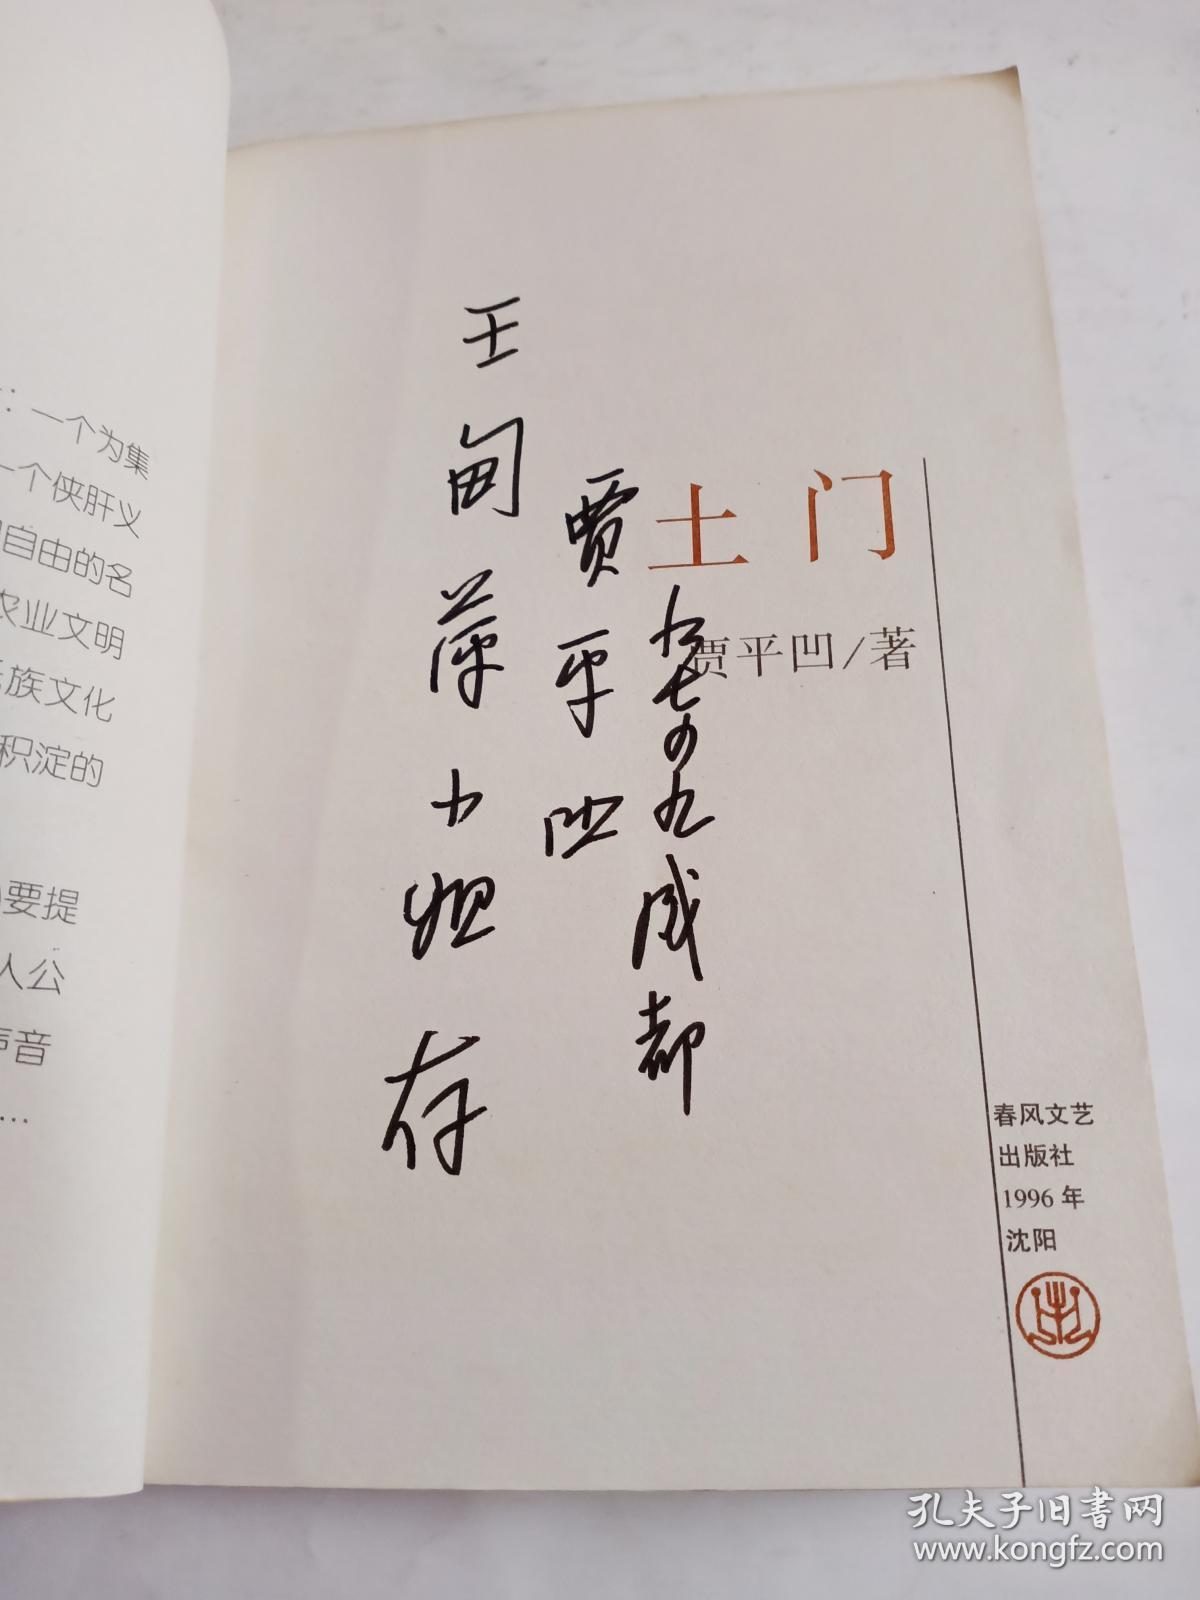 ：一个为集
一个侠肝义
自由的名
农业文明
族文化
积淀的
要提
人公
声音
…
王甸萍小姐存
贾平凹
九七.四.九 成都
土门
贾平凹/著
春风文艺
出版社
1996年
沈阳
孔夫子旧书网
www.kongfz.com